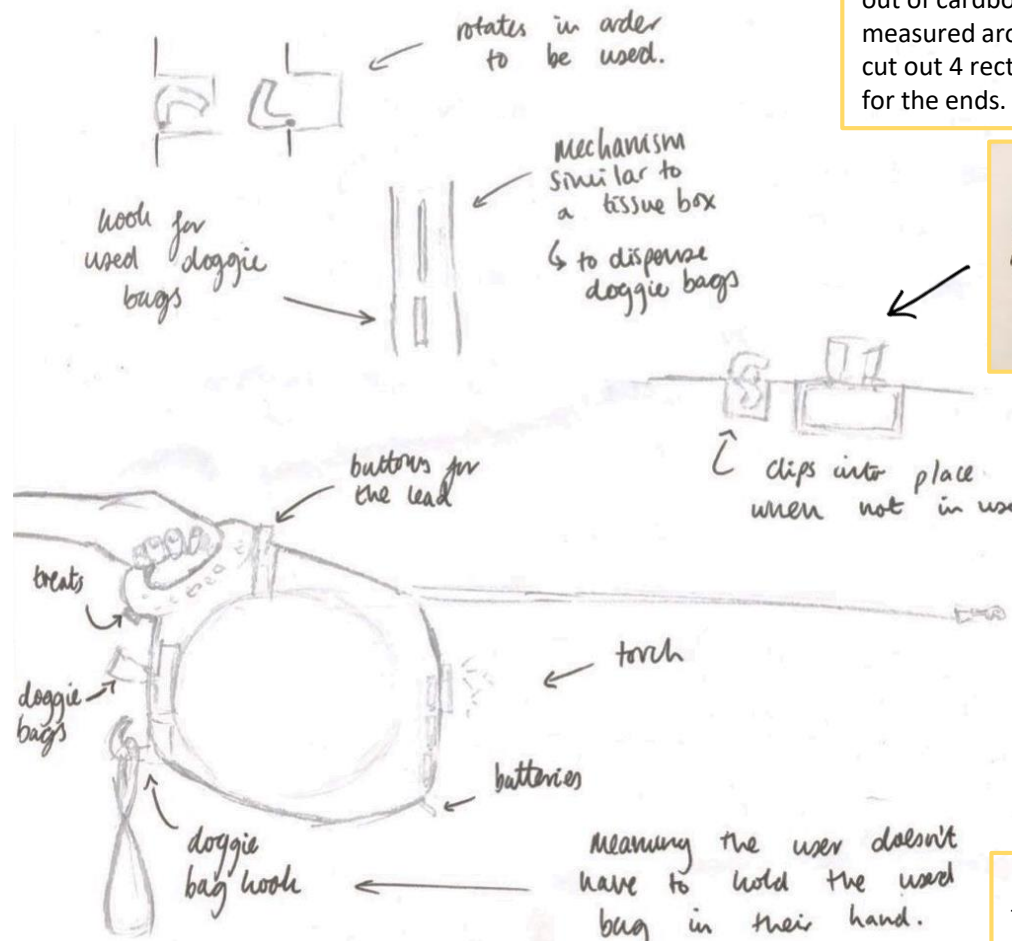 out of cardbo
measured aro
cut out 4 rect
for the ends.
rotates in order
to be used.
Mechanism
similar to
a tissue box
↳ to dispense
doggie bags
hook for
used doggie
bags
clips into place
when not in use
buttons for
the lead
treats
doggie
bags
torch
batteries
doggie
bag hook
Meaning the user doesn't
have to hold the used
bag in their hand.